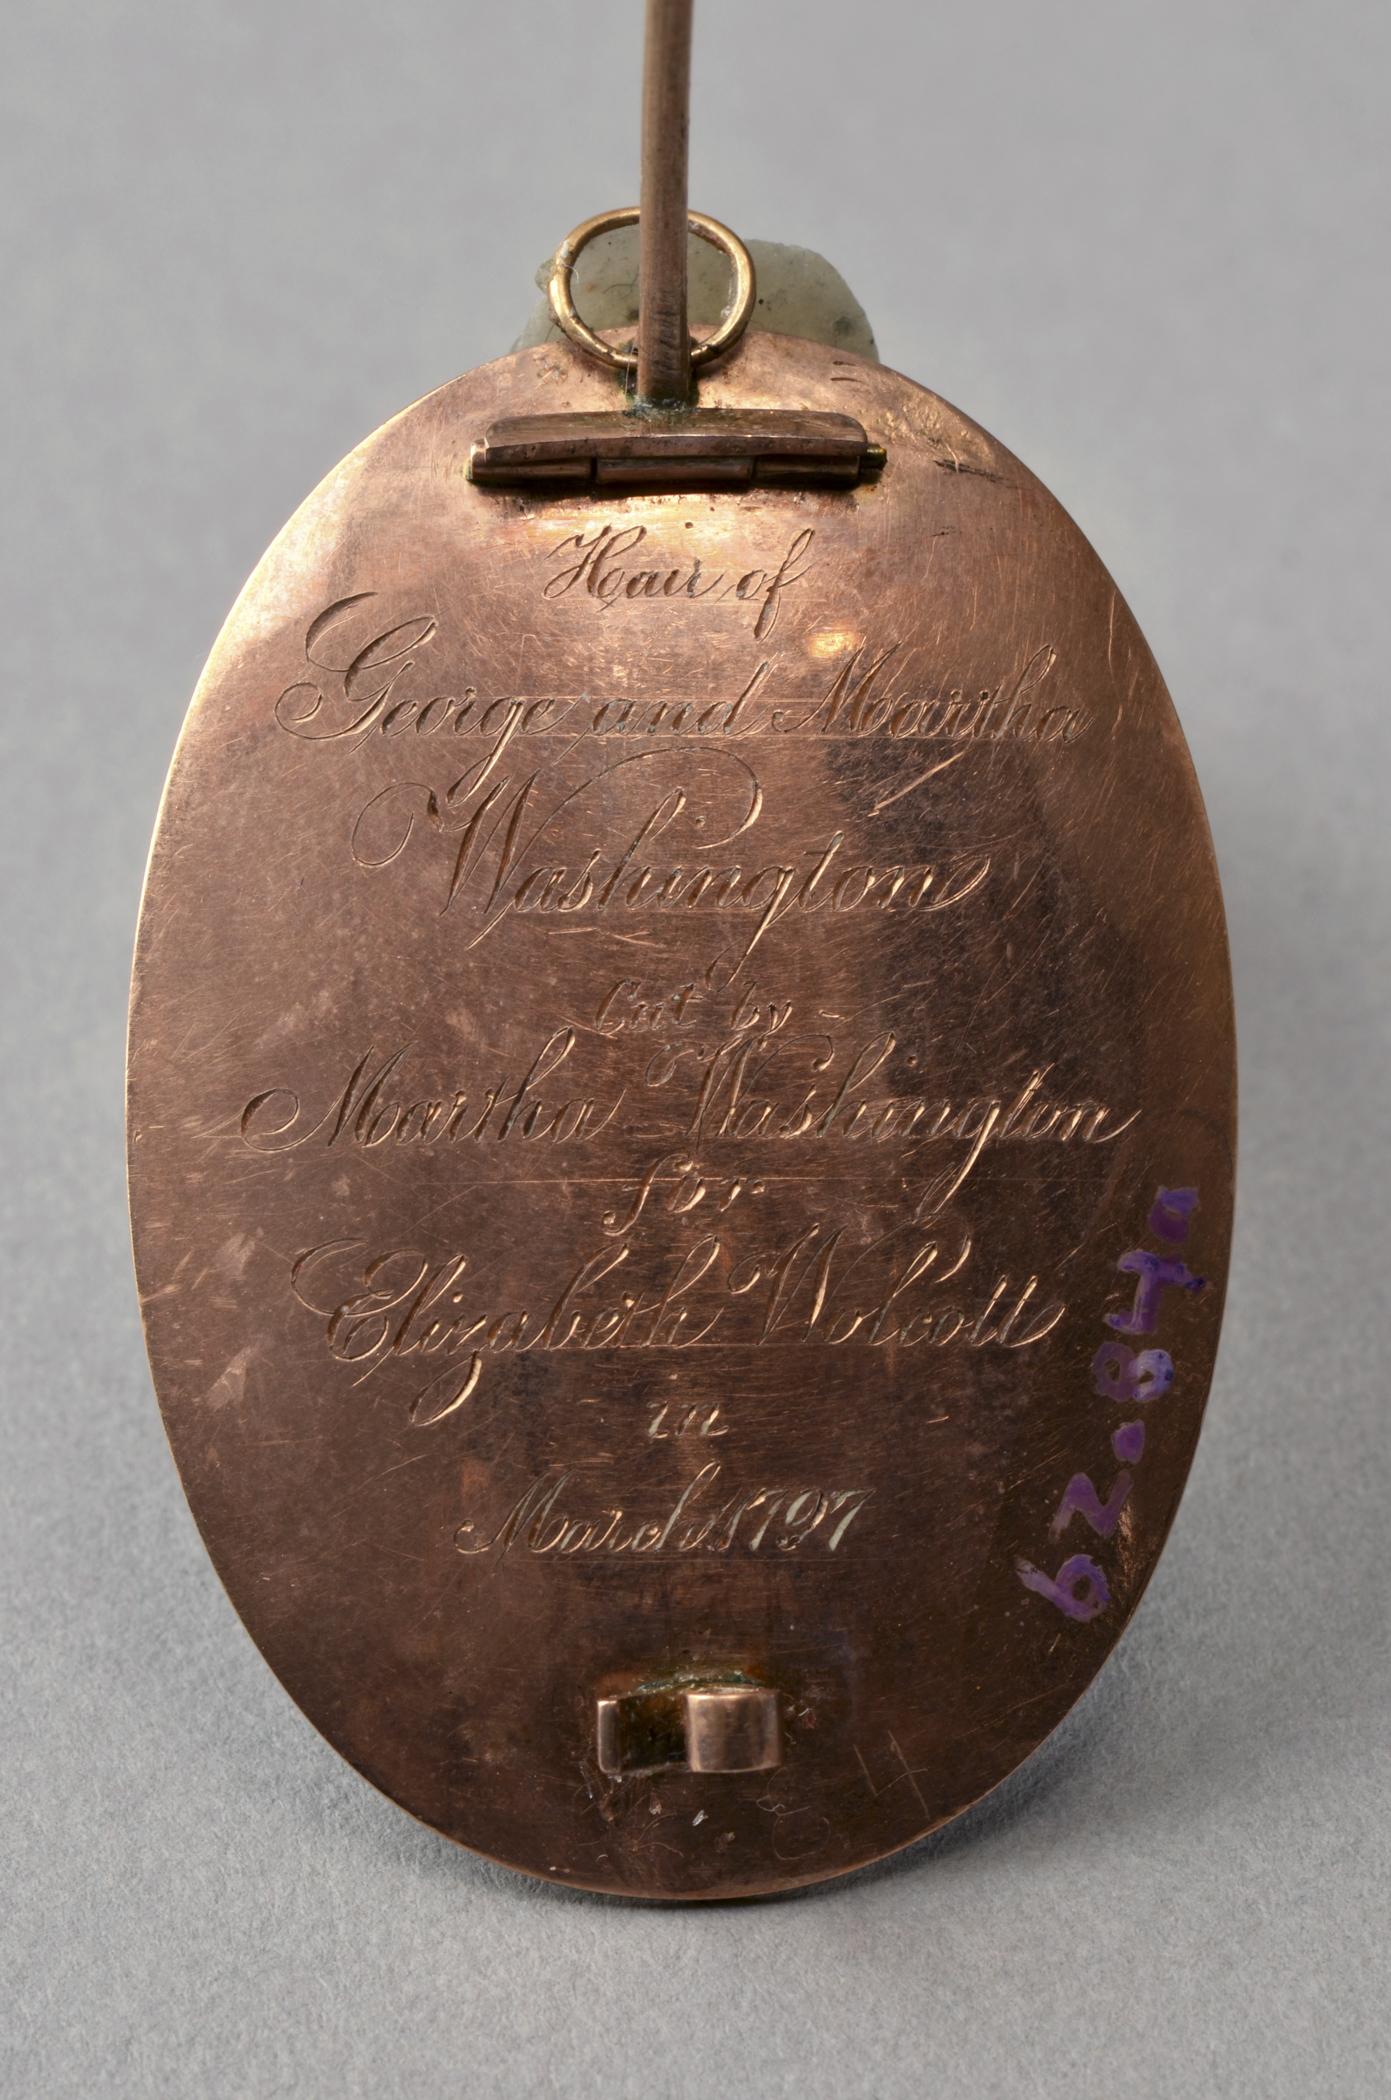 Hair of
George and Martha
Washington
Cut by
Martha Washington
for
Elizabeth Wolcott
in
March 1797
62.84a